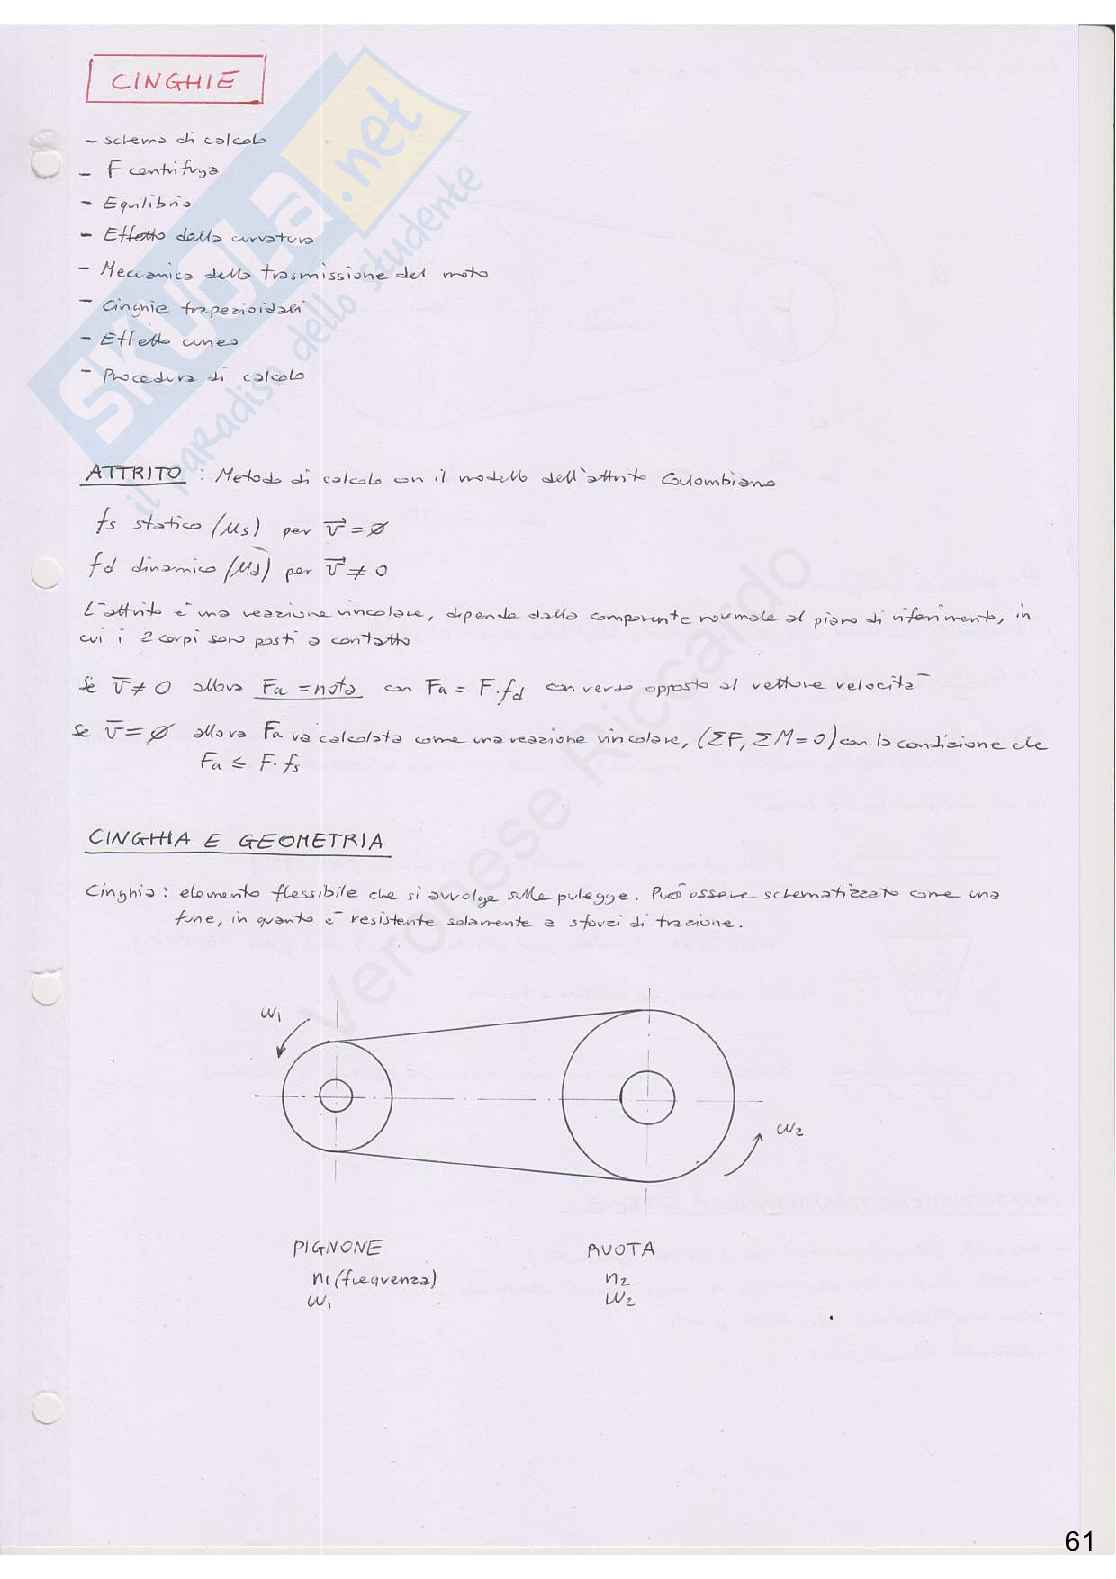 CINGHIE
- schema di calcolo
- F centrifuga
- Equilibrio
- Effetto della curvatura
- Meccanica della trasmissione del moto
- Cinghie trapezioidali
- Effetto cuneo
- Procedura di calcolo
SKUOLA.net
il paradiso dello studente
ATTRITO : Metodo di calcolo con il modello dell'attrito Coulombiano
fs statico (μs) per v⃗ = ∅
fd dinamico (μd) per v⃗ ≠ 0
L'attrito è una reazione vincolare, dipende dalla componente normale al piano di riferimento, in
cui i 2 corpi sono posti a contatto
Se v̄ ≠ 0 allora Fa = nota con Fa = F·fd con verso opposto al vettore velocità
Se v̄ = ∅ allora Fa va calcolata come una reazione vincolare, (ΣF, ΣM = 0) con la condizione che
Fa ≤ F·fs
CINGHIA E GEOMETRIA
Cinghia : elemento flessibile che si avvolge sulle pulegge. Può essere schematizzato come una
fune, in quanto è resistente solamente a sforzi di trazione.
Veronese Riccardo
ω1
ω2
PIGNONE RUOTA
n1 (frequenza) n2
ω1 ω2
61